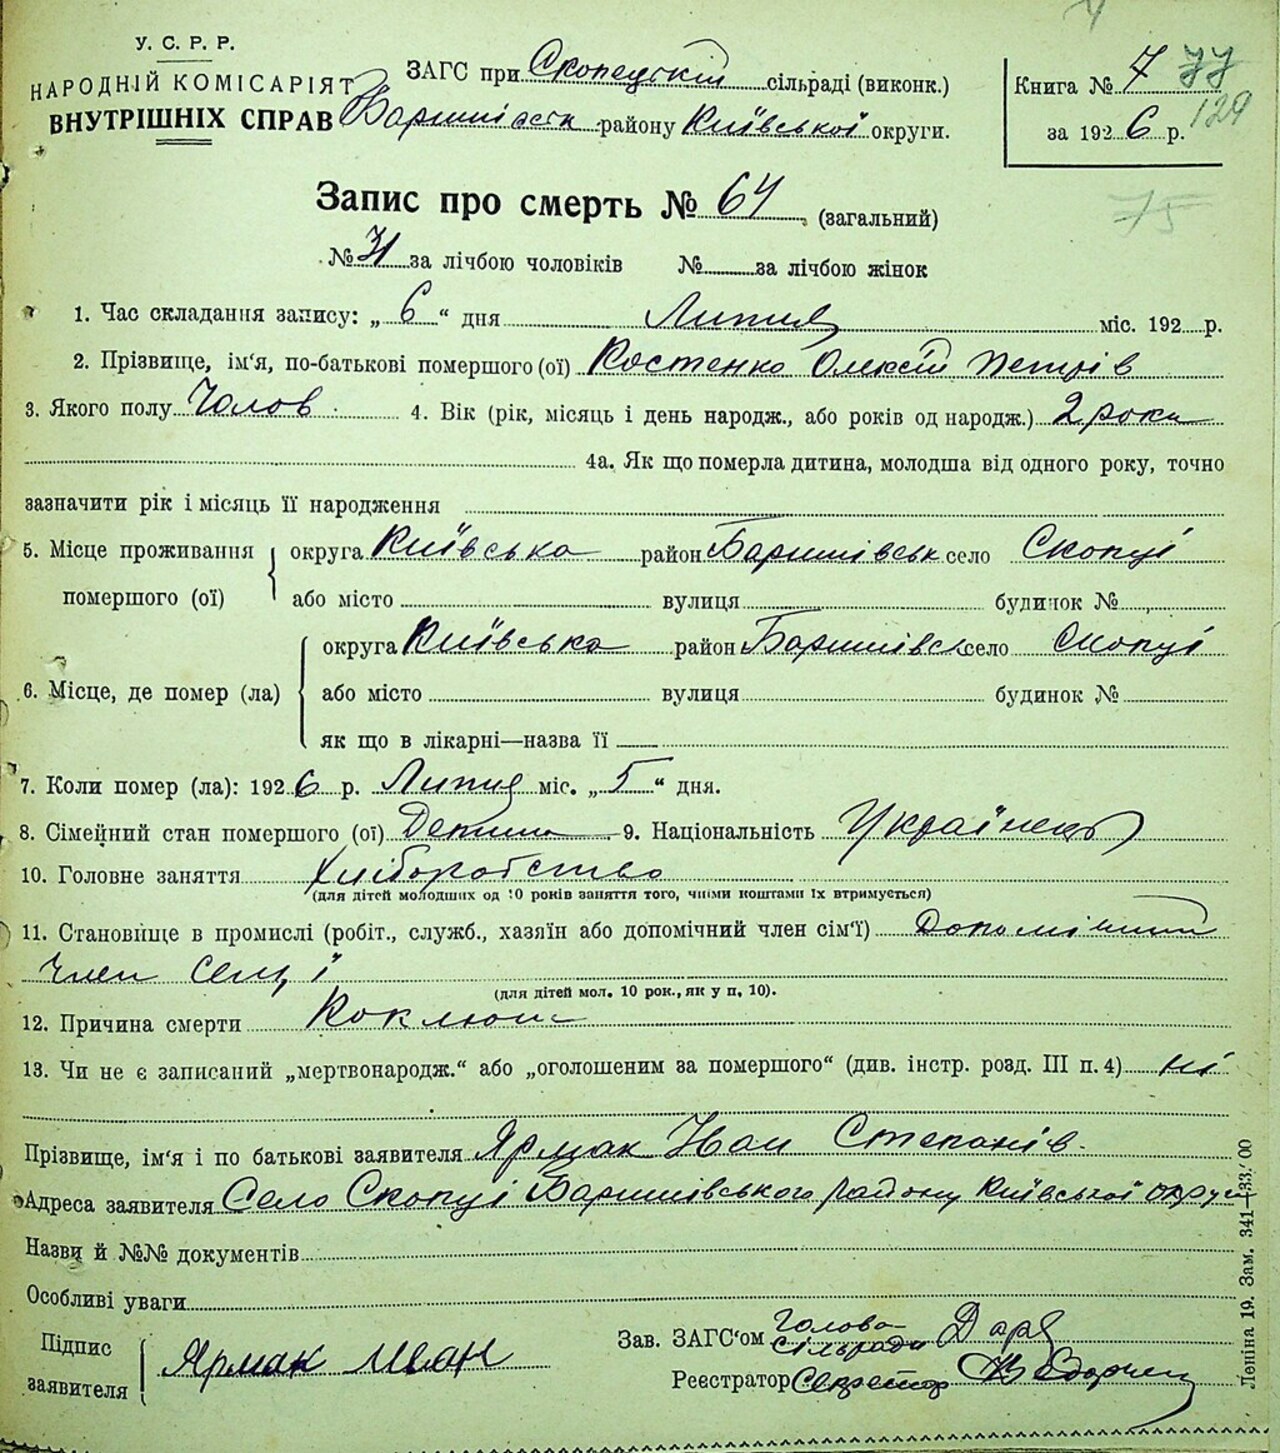 У. С. Р. Р.
НАРОДНІЙ КОМІСАРІЯТ
ВНУТРІШНІХ СПРАВ
ЗАГС при Скопецькій сільраді (виконк.)
району Київської округи.
Книга № 7 77
за 1926 р. 129
Запис про смерть № 64 (загальний)
75
№ 31 за лічбою чоловіків № за лічбою жінок
1. Час складання запису: „6“ дня Липня міс. 192 р.
2. Прізвище, ім'я, по-батькові помершого (ої) Костенко Олексій Петрів
3. Якого полу Чолов. 4. Вік (рік, місяць і день народж., або років од народж.) 2 роки
4а. Як що померла дитина, молодша від одного року, точно
зазначити рік і місяць її народження
5. Місце проживання помершого (ої) округа Київська район Баришівськ село Скопці
або місто вулиця будинок №
6. Місце, де помер (ла) округа Київська район Баришівськ село Скопці
або місто вулиця будинок №
як що в лікарні—назва її
7. Коли помер (ла): 1926 р. Липня міс. „5“ дня.
8. Сімейний стан помершого (ої) Детина 9. Національність Українець
10. Головне заняття Хліборобство
(для дітей молодших од 10 років заняття того, чиїми коштами їх втримується)
11. Становище в промислі (робіт., служб., хазяїн або допомічний член сім'ї) Допомічний
член семї
(для дітей мол. 10 рок., як у п. 10).
12. Причина смерти Коклюш
13. Чи не є записаний „мертвонародж.“ або „оголошеним за помершого“ (див. інстр. розд. III п. 4) ні
Прізвище, ім'я і по батькові заявителя Ярмак Іван Степанів.
Адреса заявителя Село Скопці Баришівського району Київської округи
Назви й №№ документів
Особливі уваги
Підпис заявителя Ярмак Иван
Зав. ЗАГС'ом Голова сільради
Реєстратор Секретар
Леніна 19. Зам. 341—33.'00